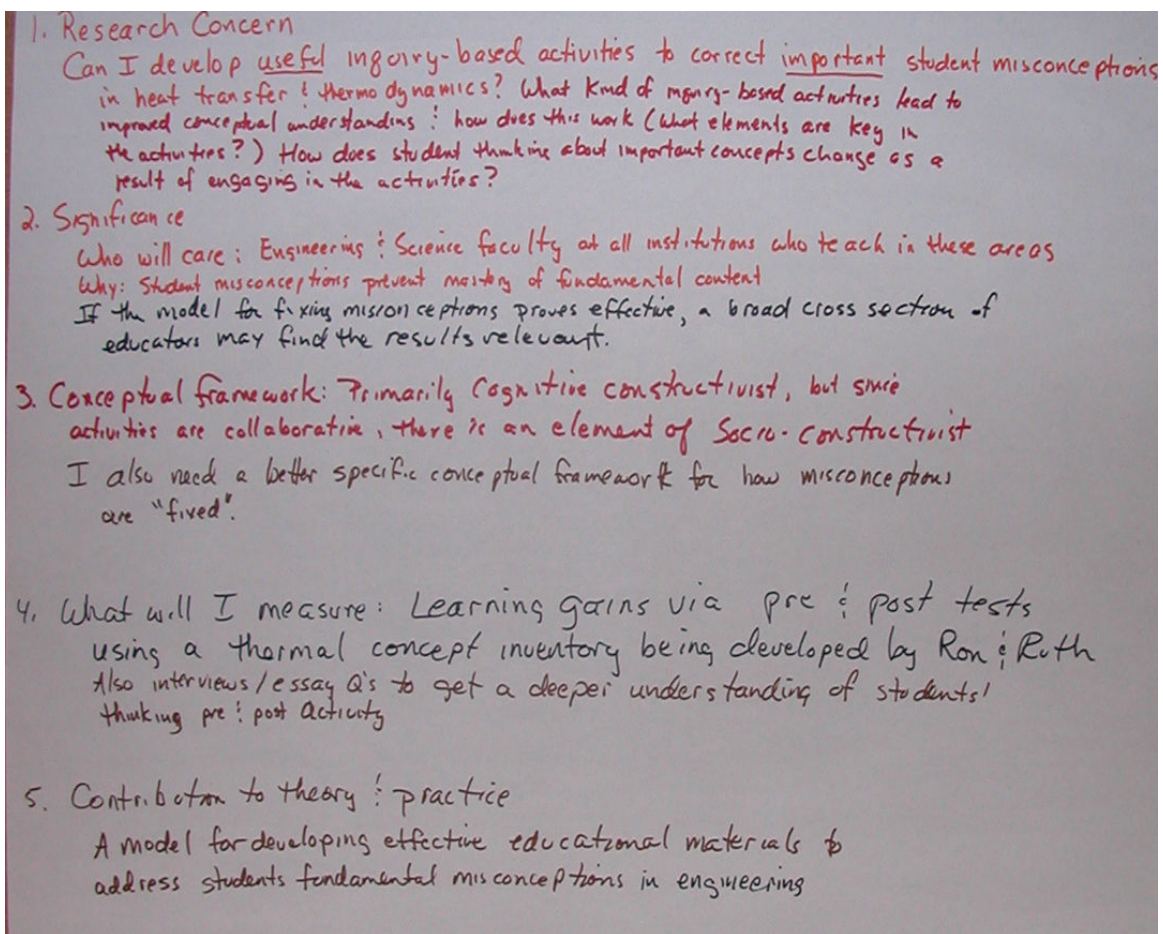 1. Research Concern
Can I develop useful inquiry-based activities to correct important student misconceptions
in heat transfer & thermodynamics? What kind of inquiry-based activities lead to
improved conceptual understanding & how does this work (what elements are key in
the activities?) How does student thinking about important concepts change as a
result of engaging in the activities?
2. Significance
Who will care: Engineering & Science faculty at all institutions who teach in these areas
Why: Student misconceptions prevent mastery of fundamental content
If the model for fixing misconceptions proves effective, a broad cross section of
educators may find the results relevant.
3. Conceptual framework: Primarily Cognitive constructivist, but since
activities are collaborative, there is an element of Socio-constructivist
I also need a better specific conceptual framework for how misconceptions
are "fixed".
4. What will I measure: Learning gains via pre & post tests
using a thermal concept inventory being developed by Ron & Ruth
Also interviews/essay Q's to get a deeper understanding of students'
thinking pre & post activity
5. Contribution to theory & practice
A model for developing effective educational materials to
address students fundamental misconceptions in engineering